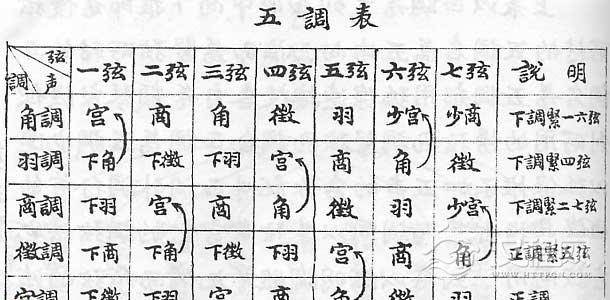 五調表
弦 声 調 一弦 二弦 三弦 四弦 五弦 六弦 七弦 說明
角調 宫 商 角 徵 羽 少宫 少商 下調緊一六弦
羽調 下角 下徵 下羽 宫 商 角 徵 下調緊四弦
商調 下羽 宫 商 角 徵 羽 少宫 下調緊二七弦
徵調 下商 下角 下徵 下羽 宫 商 角 正調緊五弦
宫調 下徵 下羽 宫 商 角 徵 羽 正調